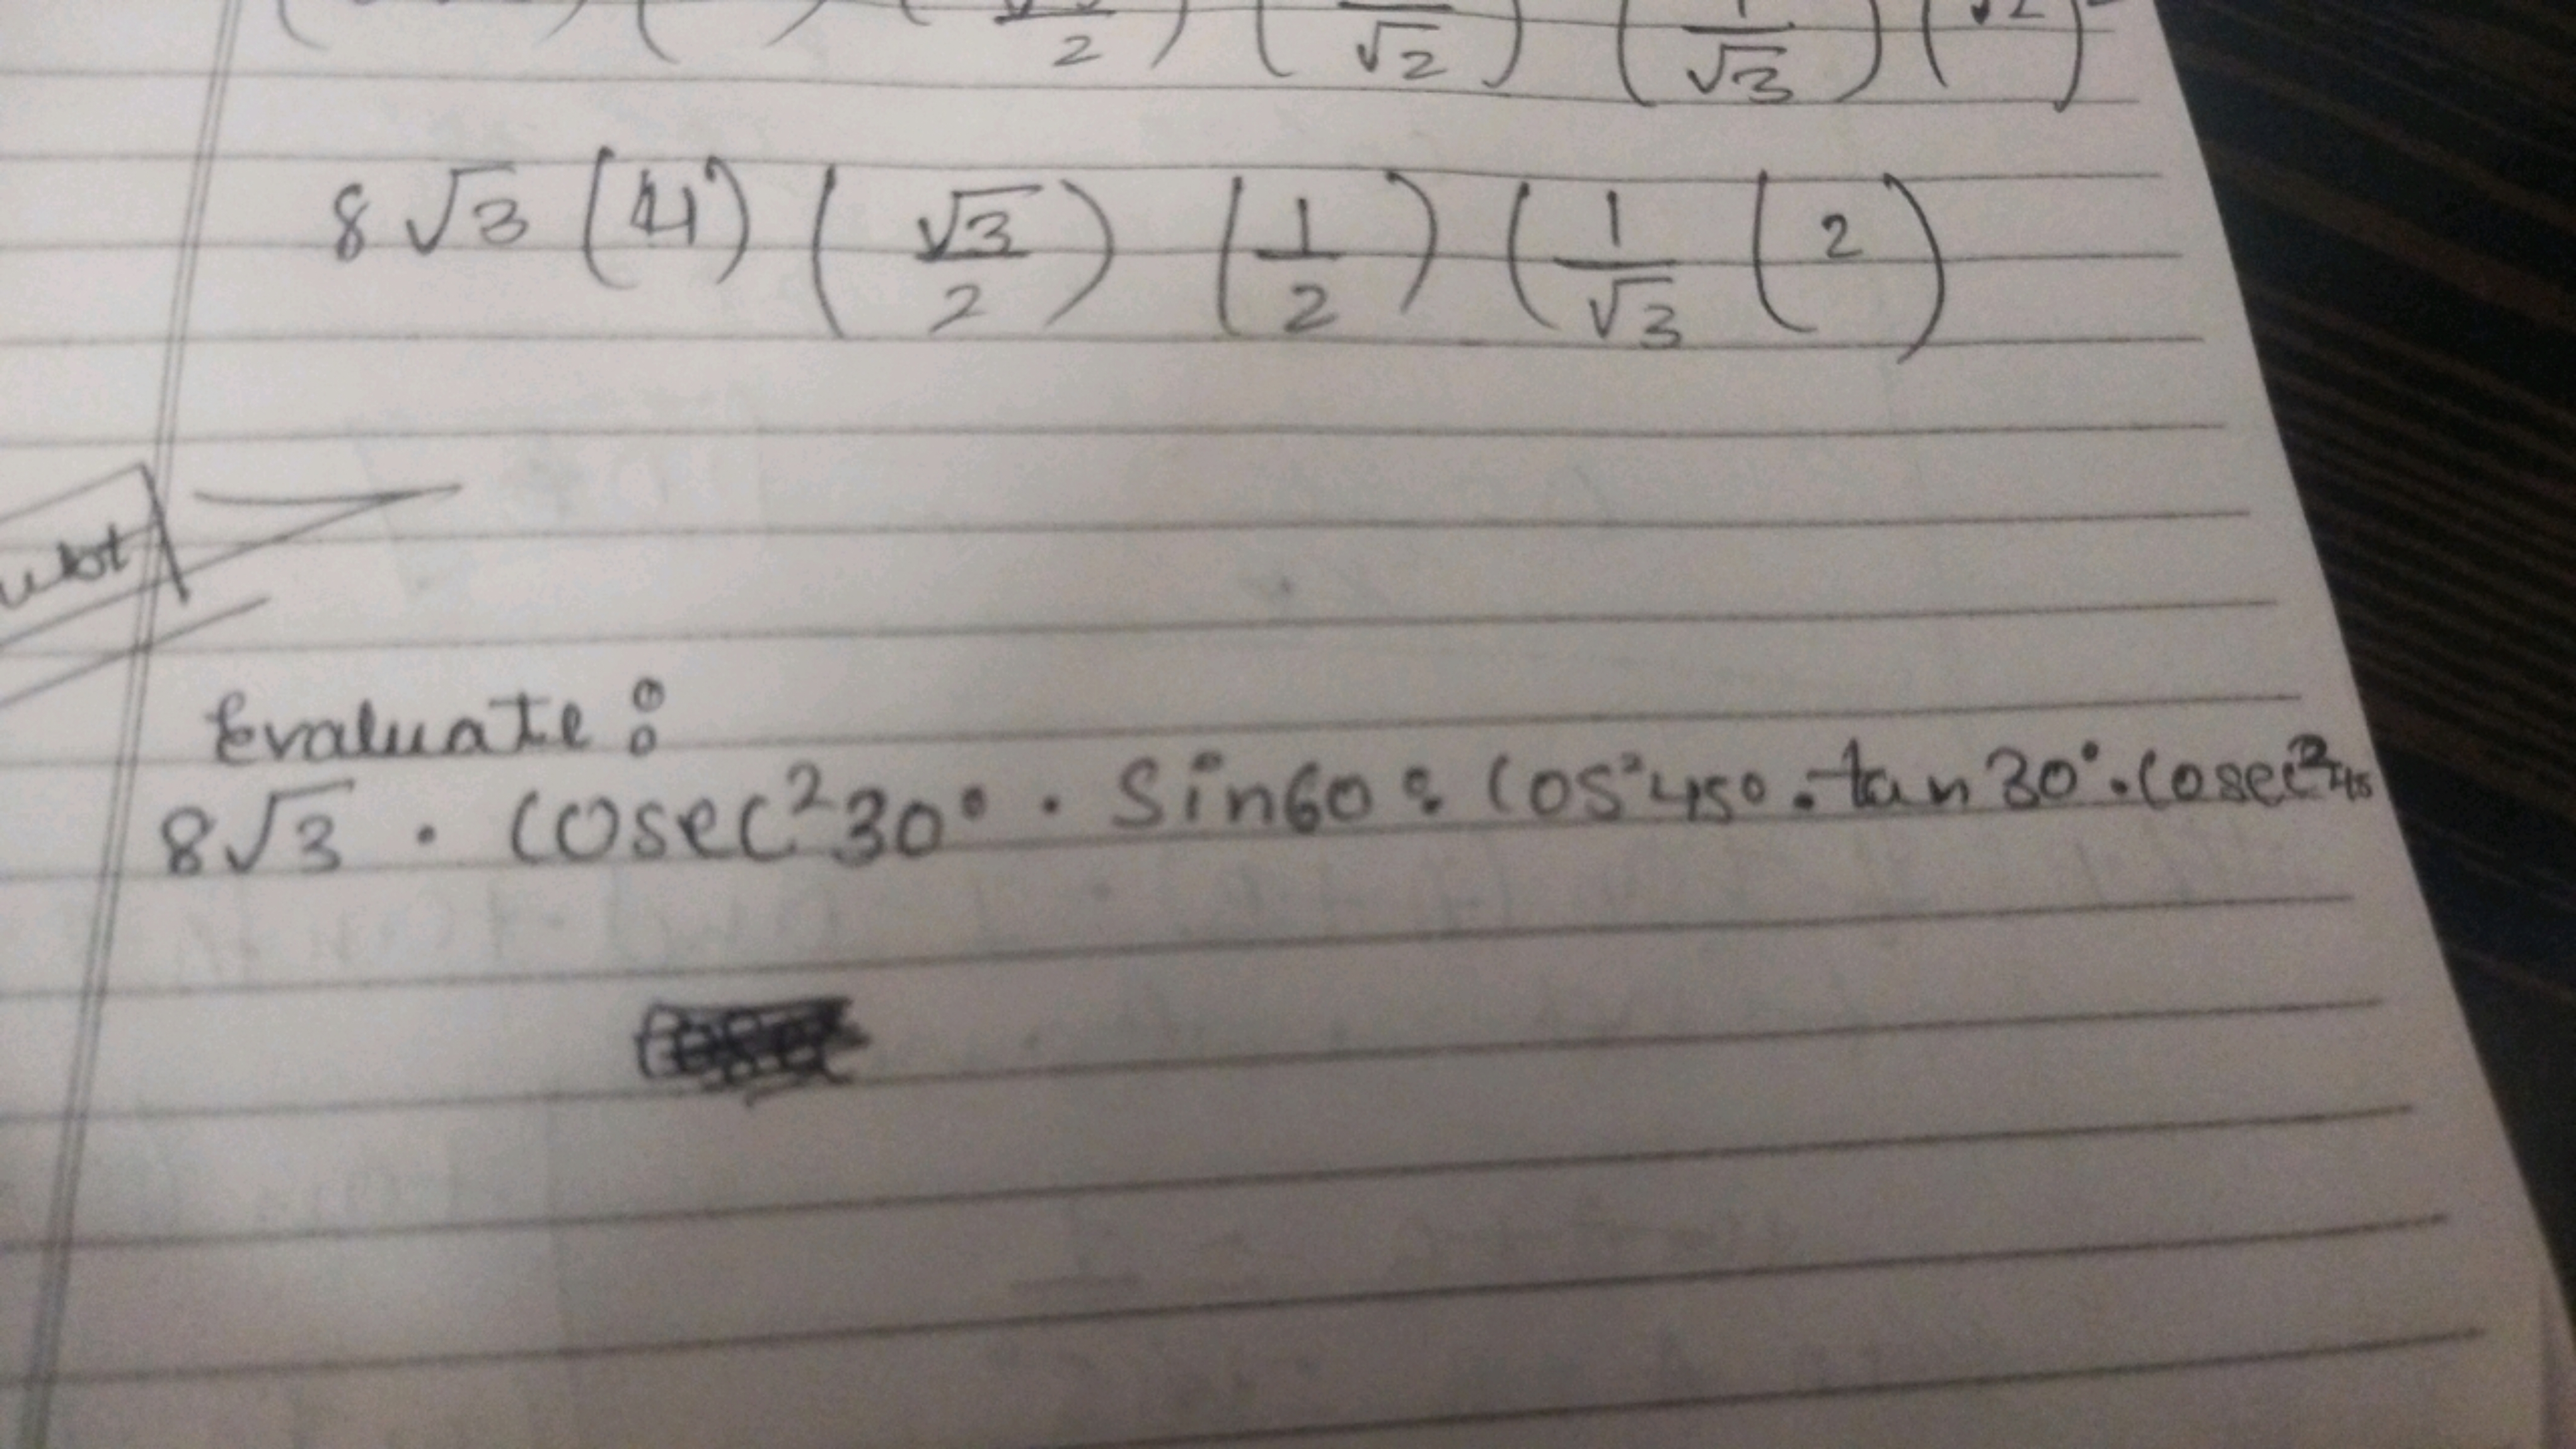 ( ) ( ) ( /2 ) ( /√2 ) ( 1/√3 ) ( √2 )²
8√3 (4) ( √3/2 ) ( 1/2 ) ( 1/√3 ( 2 )
Evaluate :
8√3 . cosec²30° . Sin60° . Cos²45° . tan 30° . Cosec²45